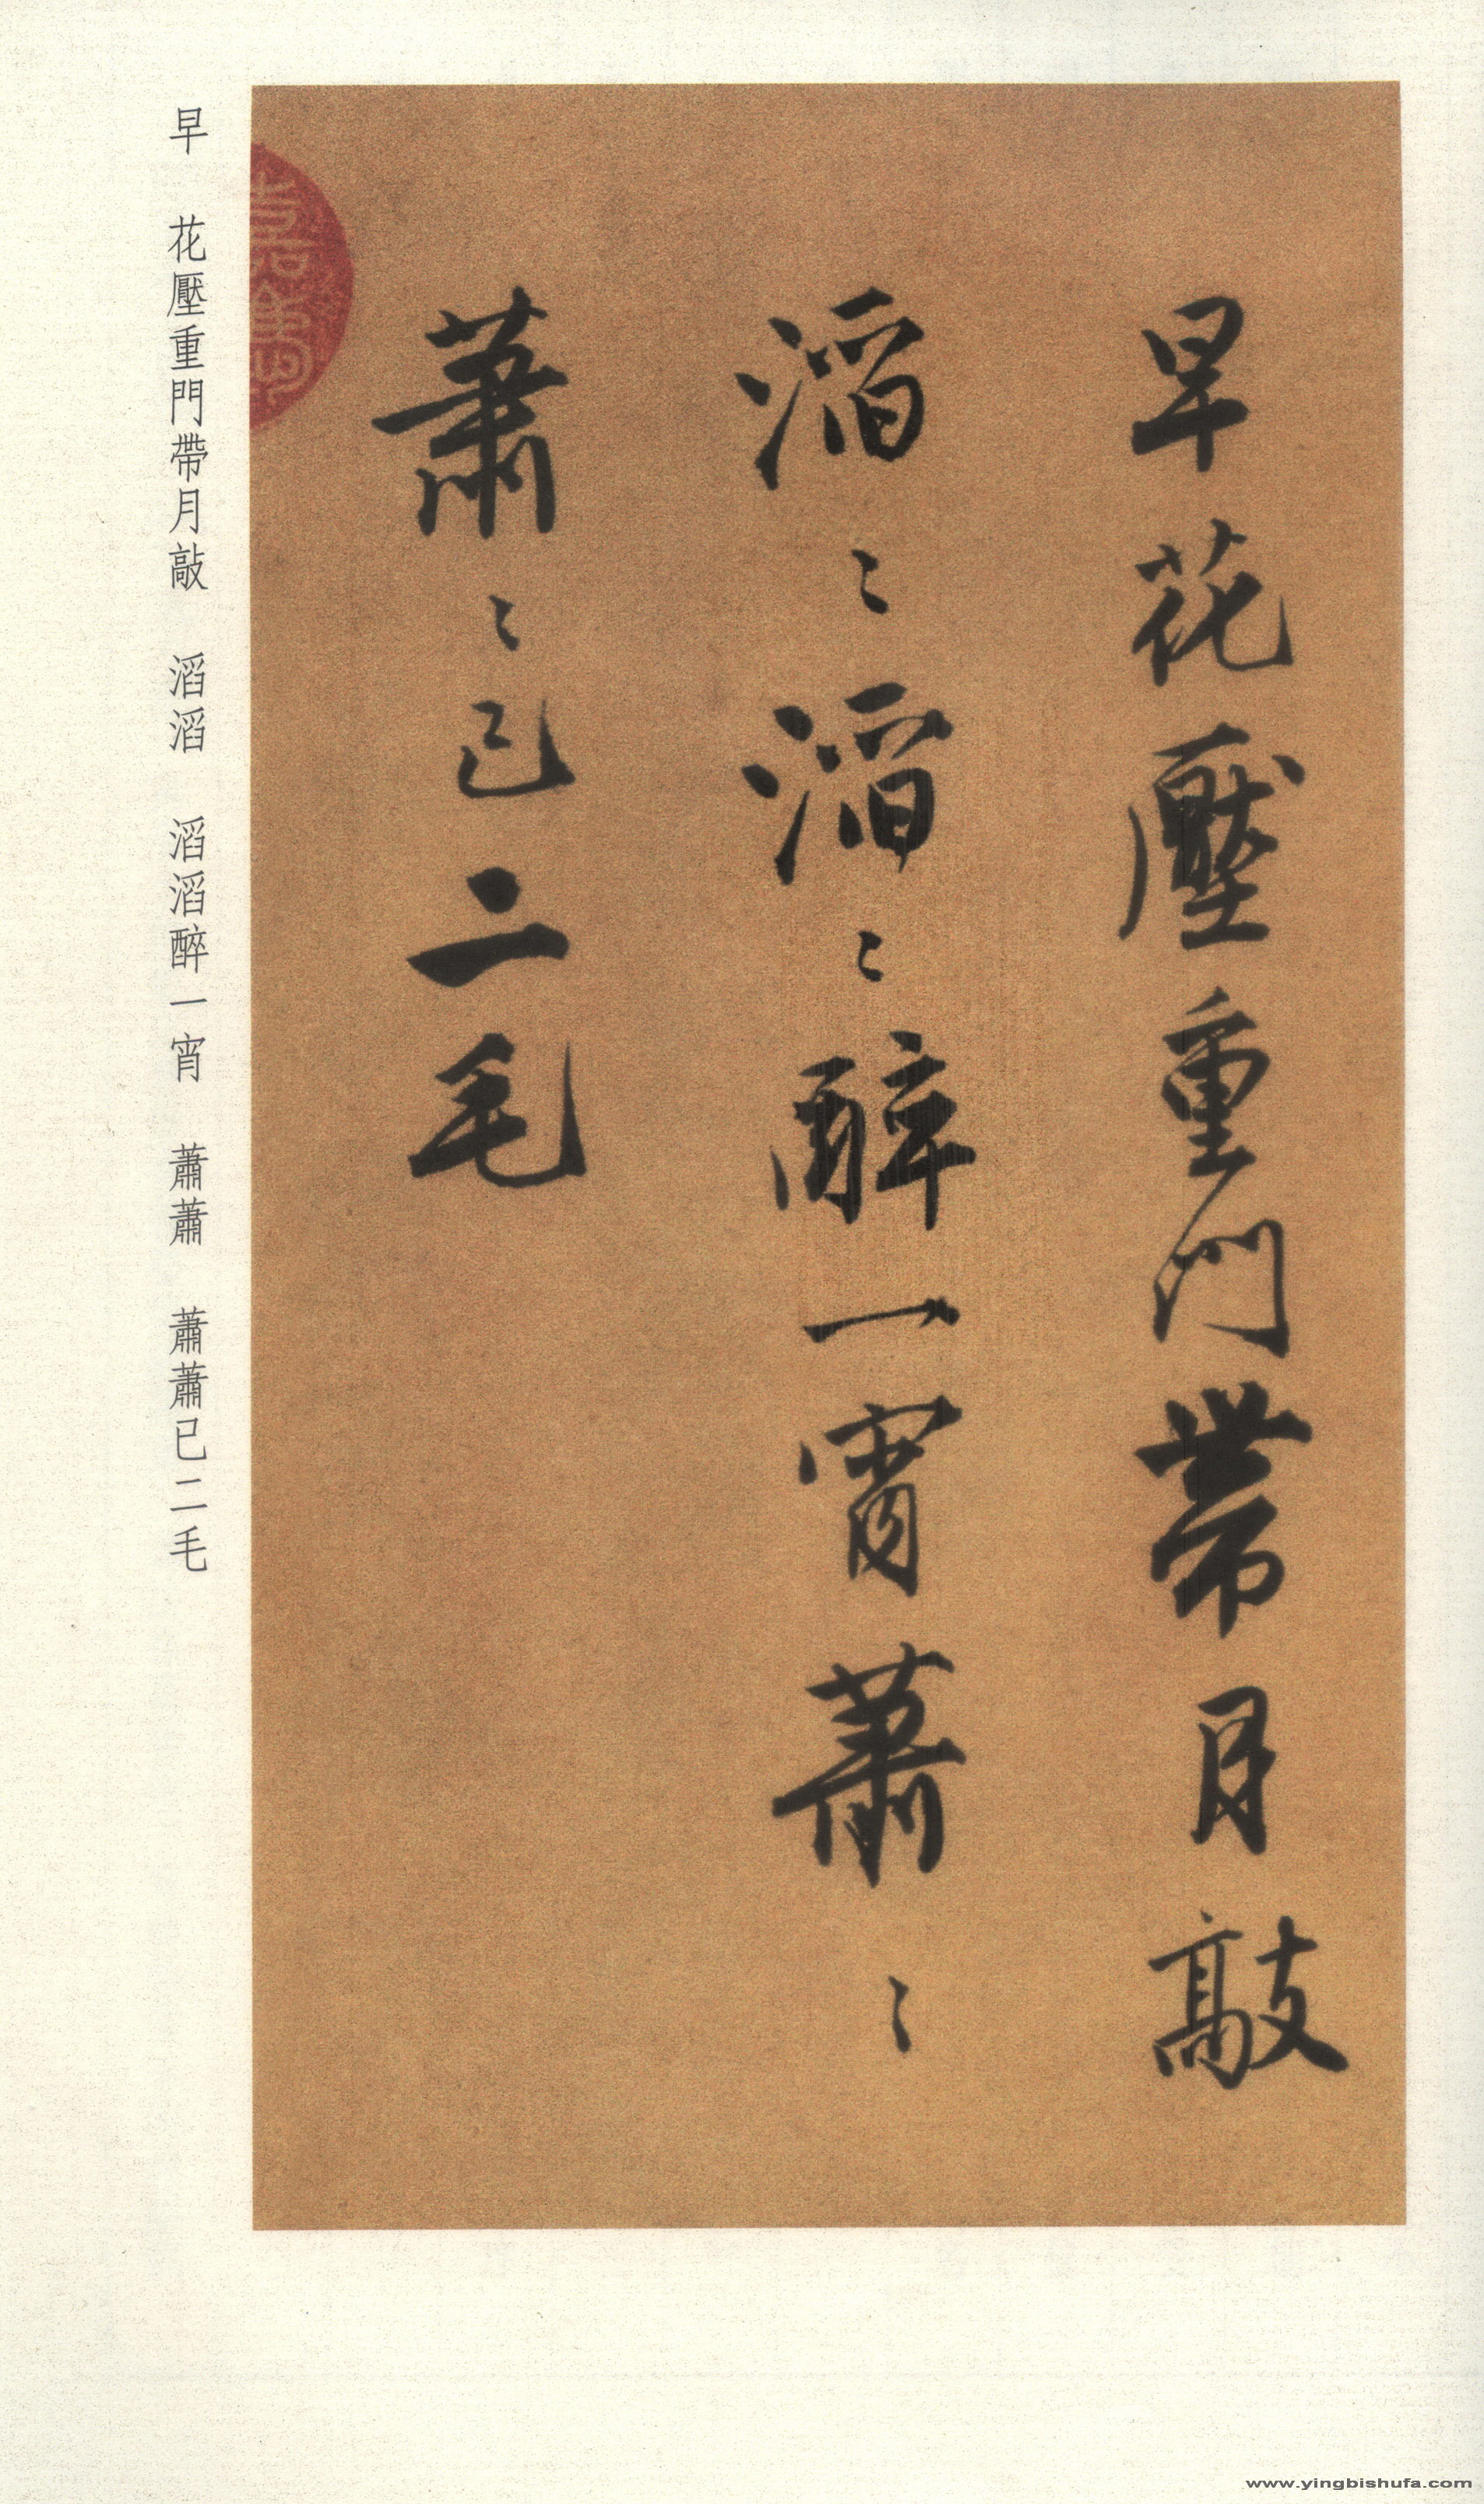 早花壓重門帶月敲
滔〻滔〻醉一宵蕭〻
蕭〻已二毛
早 花壓重門帶月敲 滔滔 滔滔醉一宵 蕭蕭 蕭蕭已二毛
www.yingbishufa.com